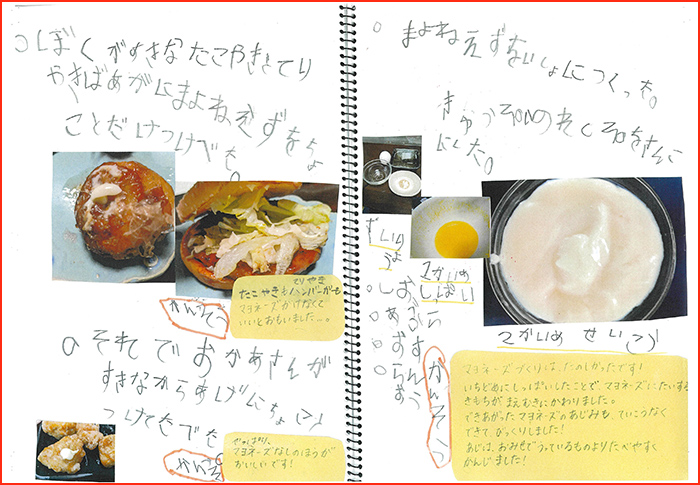 ○ぼくがすきなたこやきとてり
やきばあがにまよねえずをちょ
ことだけつけべた。
てりやき
たこやきもハンバーガーも
マヨネーズかけなくて
いいとおもいました…。
かんそう
○それでおかあさんが
すきなからあげにちょこっ
つけてたべた
やっぱり、
マヨネーズなしのほうが
おいしいです!
かんそう
○まよねえずないしょにつくった。
にした。
ざいり
ょう
○しお
○あぶら
1かいめ
しっぱい
2かいめ せいこう
かんそう
マヨネーズづくりは、たのしかったです!
いちどめにしっぱいしたことで マヨネーズにたいする
きもちが まえむきにかわりました。
できあがったマヨネーズのあじみも、ていこうなく
できて、びっくりしました!
あじは、おみせでうっているものよりたべやすく
かんじました!